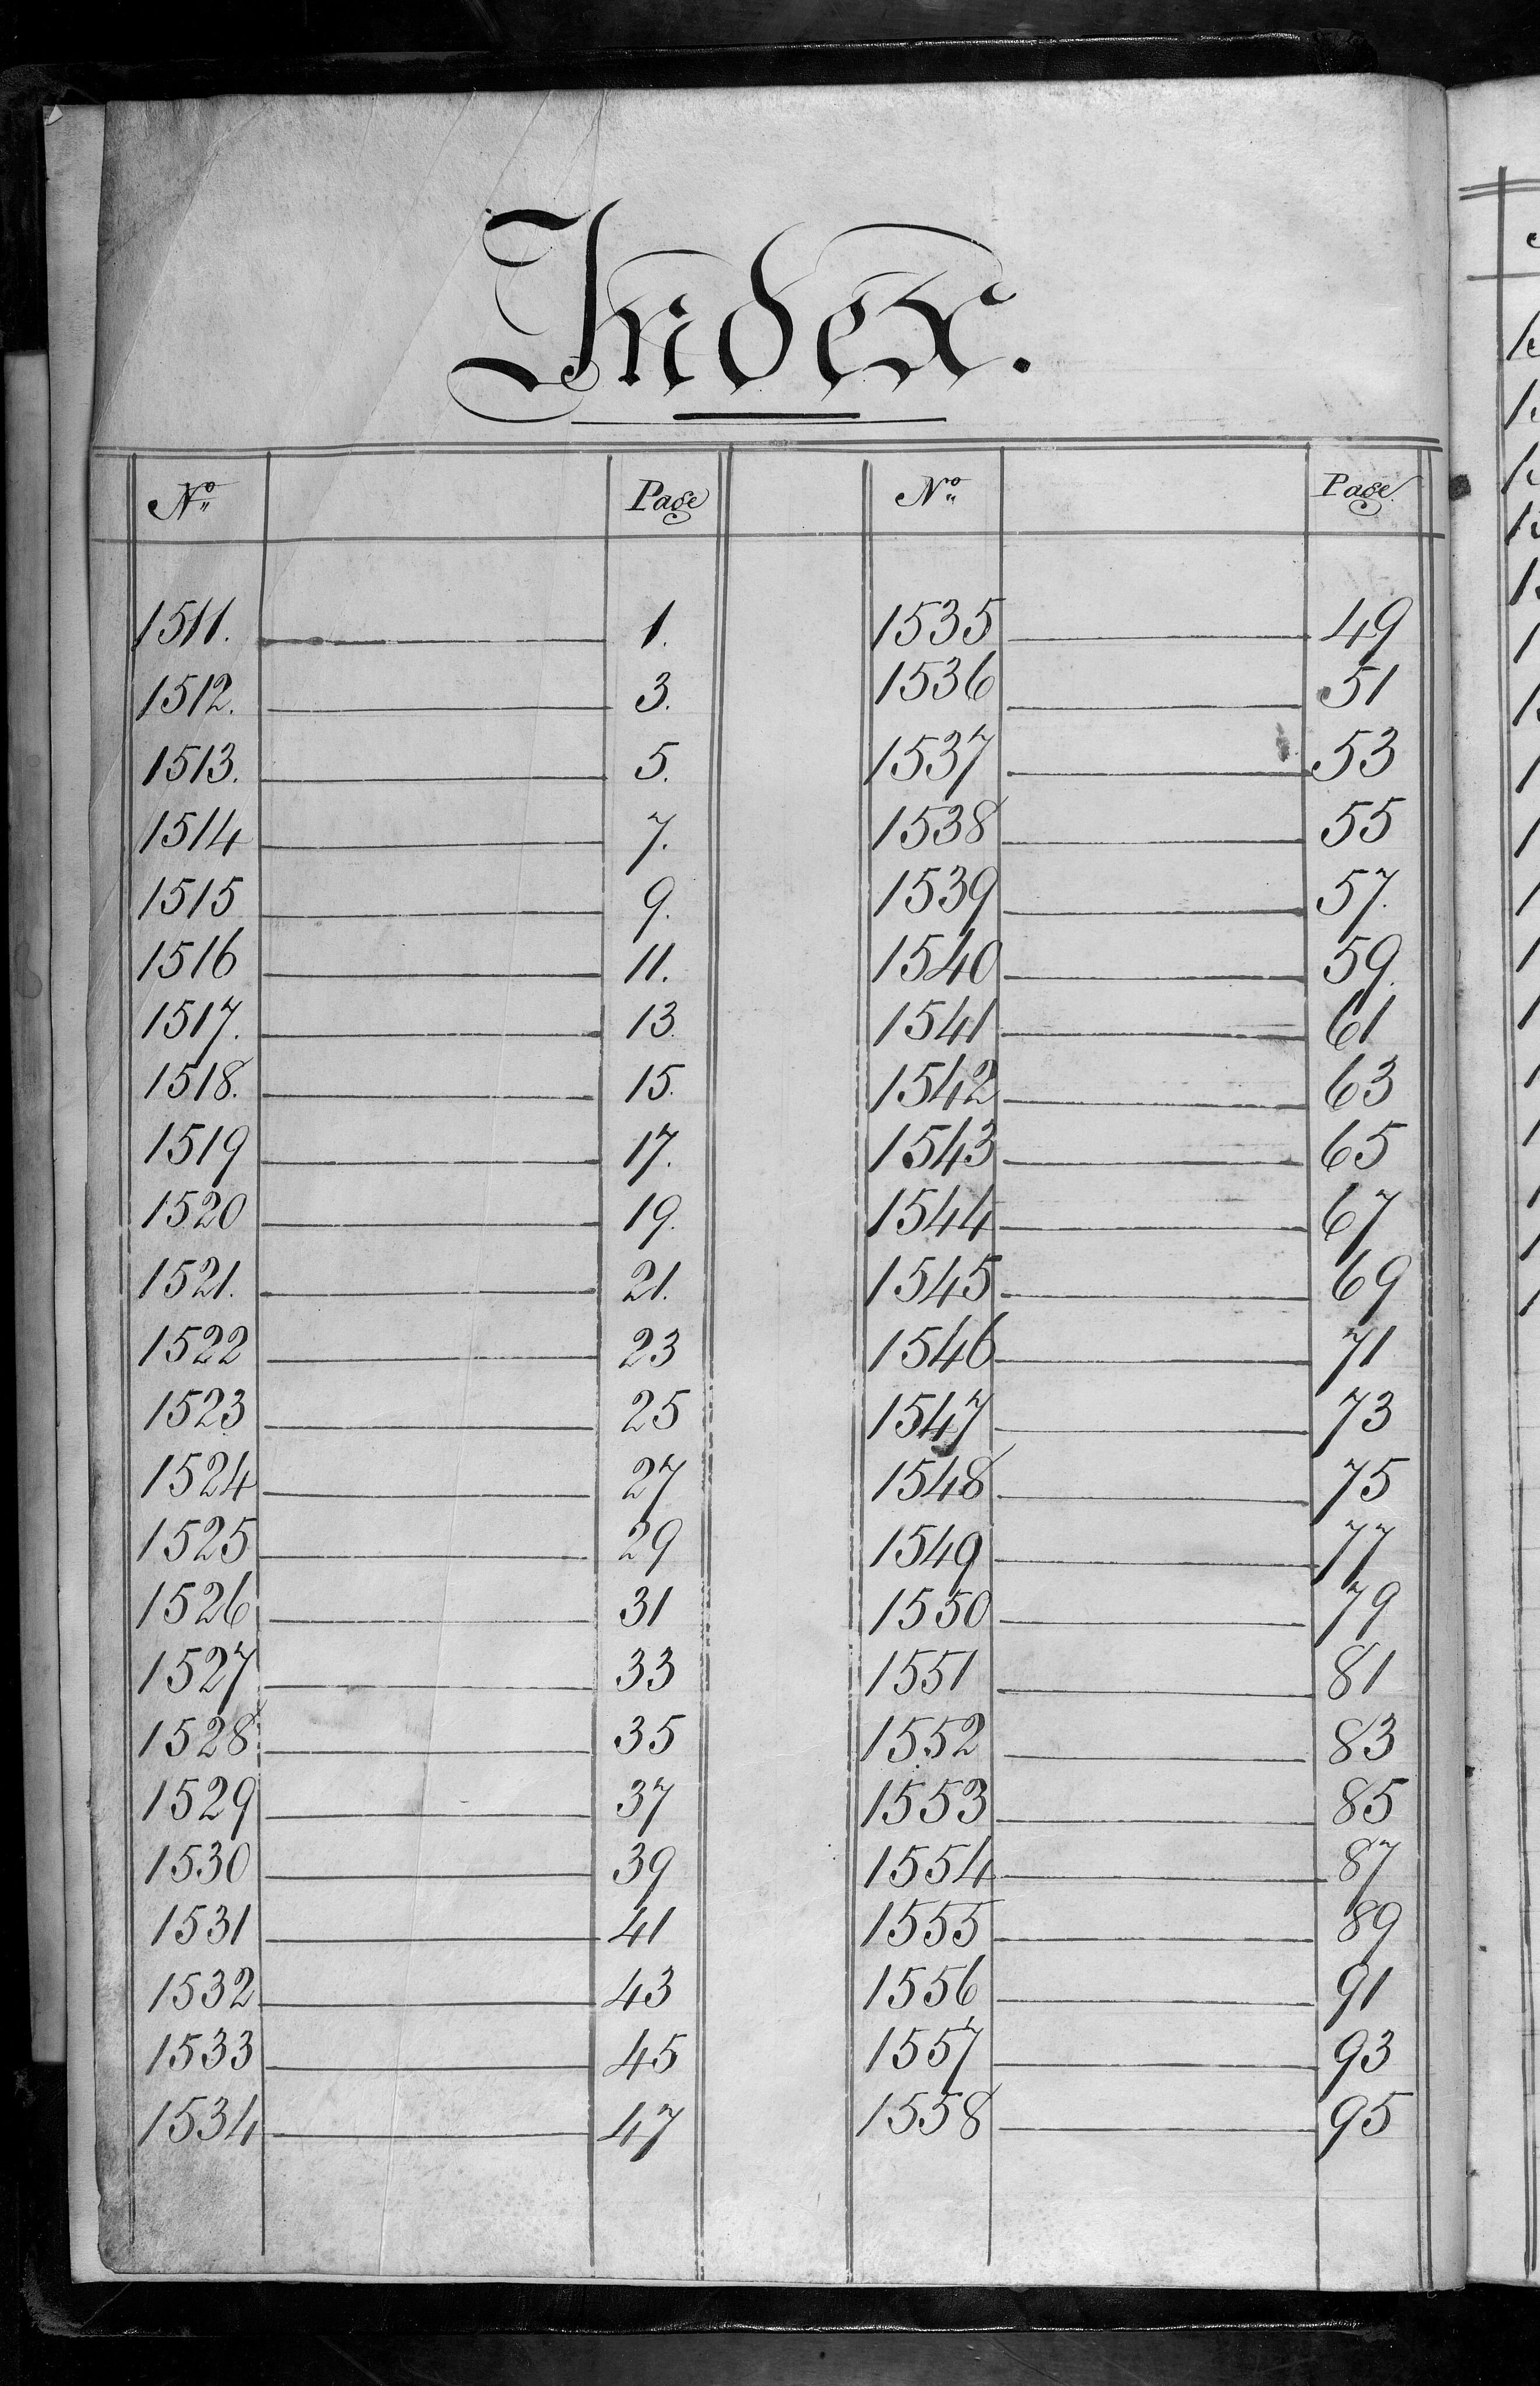 Index.
No Page No Page
1511. 1. 1535 49
1512. 3. 1536 51
1513. 5. 1537 53
1514 7. 1538 55
1515 9. 1539 57.
1516 11. 1540 59.
1517. 13. 1541 61
1518. 15. 1542 63
1519 17. 1543 65
1520 19. 1544 67
1521. 21. 1545 69
1522 23 1546 71
1523 25 1547 73
1524 27 1548 75
1525 29 1549 77
1526 31 1550 79
1527 33 1551 81
1528 35 1552 83
1529 37 1553 85
1530 39 1554 87
1531 41 1555 89
1532 43 1556 91
1533 45 1557 93
1534 47 1558 95